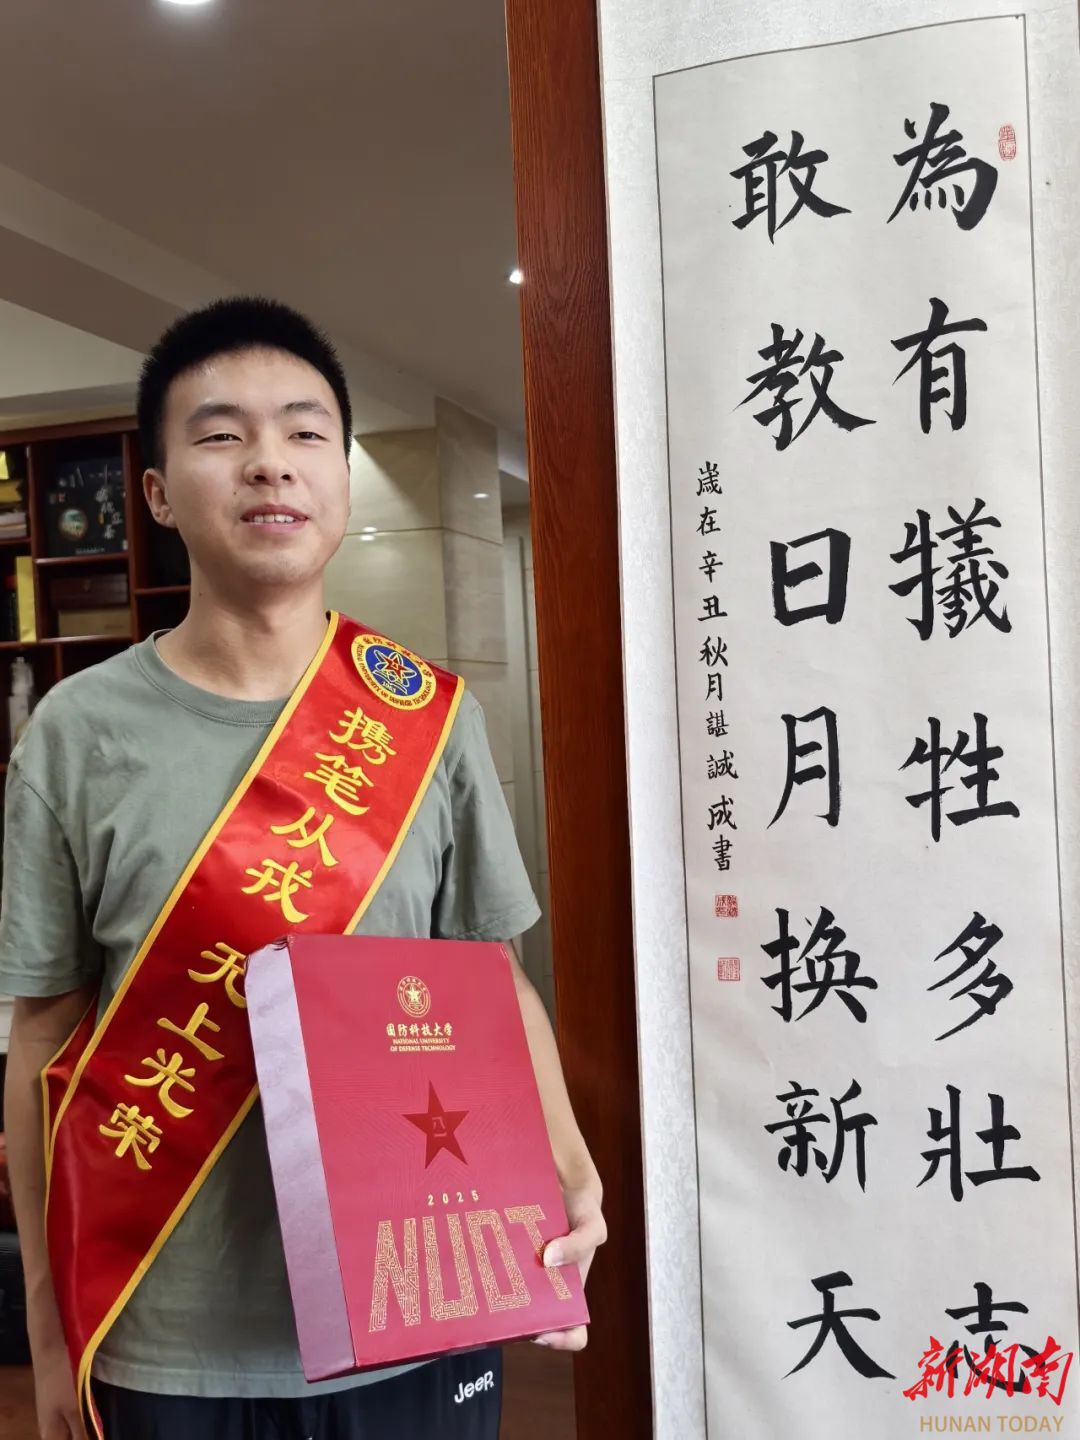 為有犧牲多壯志
敢教日月換新天
歲在辛丑秋月諶誠成書
携笔从戎 无上光荣
NATIONAL UNIVERSITY OF DEFENSE TECHNOLOGY
国防科技大学
NATIONAL UNIVERSITY
OF DEFENSE TECHNOLOGY
八一
2025
NUDT
Jeep
新湖南
HUNAN TODAY